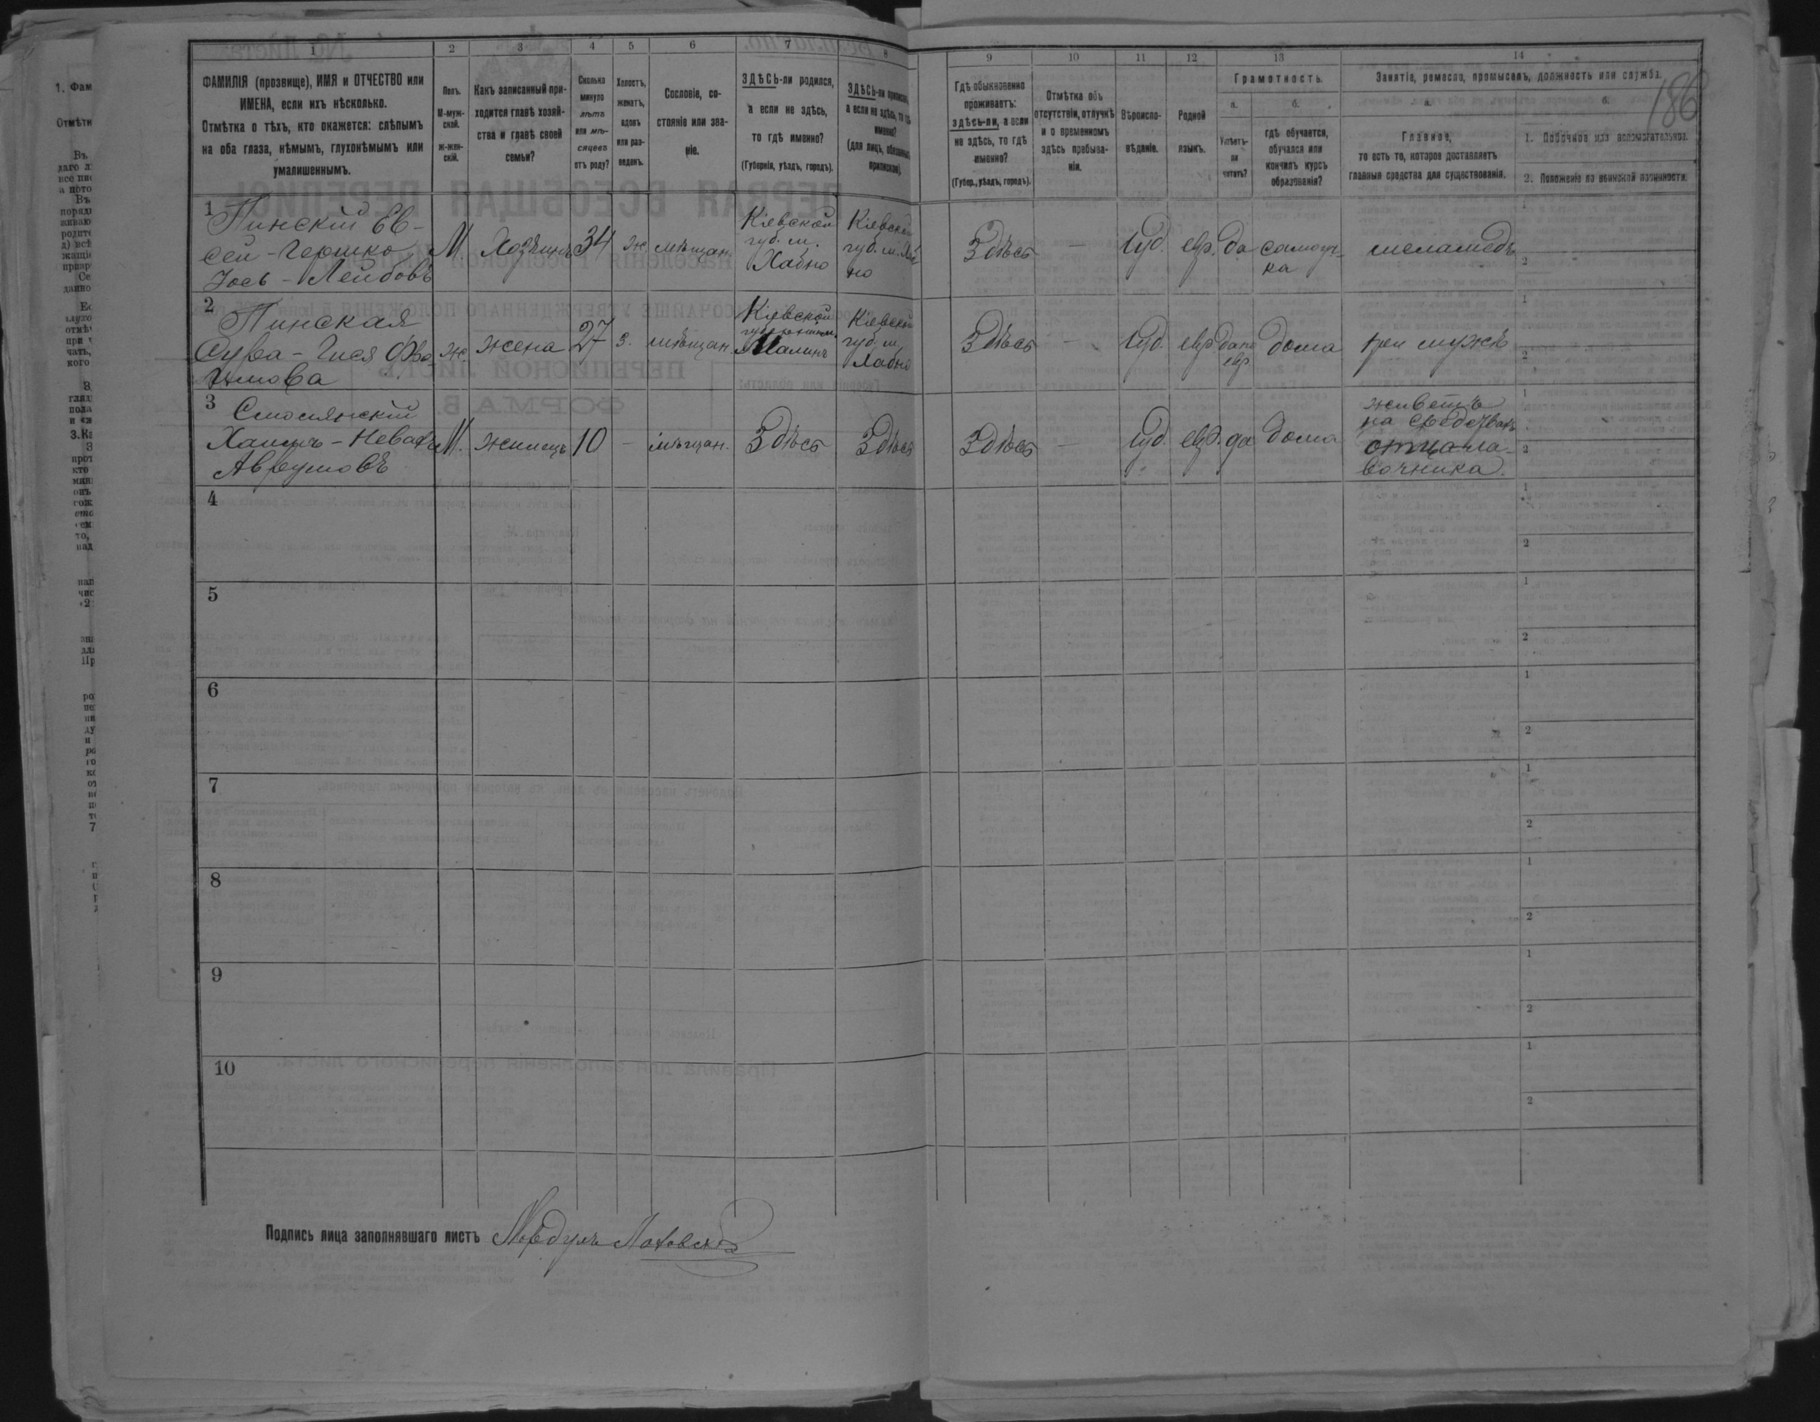 1
2
3
4
5
6
7
8
9
10
11
12
13
14
ФАМИЛІЯ (прозвище), ИМЯ и ОТЧЕСТВО или
ИМЕНА, если ихъ нѣсколько.
Отмѣтка о тѣхъ, кто окажется: слѣпымъ
на оба глаза, нѣмымъ, глухонѣмымъ или
умалишеннымъ.
Полъ.
М-муж-
ской.
Ж-жен-
скій.
Какъ записанный при-
ходится главѣ хозяй-
ства и главѣ своей
семьи?
Сколько
минуло
лѣтъ
или мѣ-
сяцевъ
отъ роду?
Холостъ,
женатъ,
вдовъ
или раз-
веденъ.
Сословіе, со-
стояніе или зва-
ніе.
ЗДѢСЬ-ли родился,
а если не здѣсь,
то гдѣ именно?
(Губернія, уѣздъ, городъ).
ЗДѢСЬ-ли приписанъ,
а если не здѣсь, то гдѣ
именно?
(для лицъ, обязанныхъ
припиской).
Гдѣ обыкновенно
проживаетъ:
здѣсь-ли, а если
не здѣсь, то гдѣ
именно?
(Губер., уѣздъ, городъ).
Отмѣтка объ
отсутствіи, отлучкѣ
и о временномъ
здѣсь пребыва-
ніи.
Вѣроиспо-
вѣданіе.
Родной
языкъ.
Грамотность.
а.
Умѣетъ-
ли
читать?
б.
гдѣ обучается,
обучался или
кончилъ курсъ
образованія?
Занятіе, ремесло, промыселъ, должность или служба.
а.
Главное,
то есть то, которое доставляетъ
главныя средства для существованія.
б.
1. Побочное или вспомогательное.
2. Положеніе по воинской повинности.
186
1
Пинскій Ев-
сей-Гершко
Іось-Лейбовъ
М.
Хозяинъ
34
ж
мѣщан.
Кіевской
губ. м.
Хабно
Кіевской
губ. м. Хаб
но
Здѣсь
—
Іуд.
евр.
да
самоуч-
ка
меламедъ
2
Пинская
Сура-Гися
ж.
жена
27
з.
мѣщан.
Кіевской
Малинъ
Кіевской
губ. м.
Хабно
Здѣсь
—
Іуд.
евр.
да по
евр
дома
при мужѣ
3
Хаимъ-
Аврумовъ
М.
жилецъ
10
—
мѣщан.
Здѣсь
Здѣсь
Здѣсь
—
Іуд.
евр.
да
дома
живетъ
на средства
отца ла-
вочника.
4
5
6
7
8
9
10
Подпись лица заполнявшаго листъ